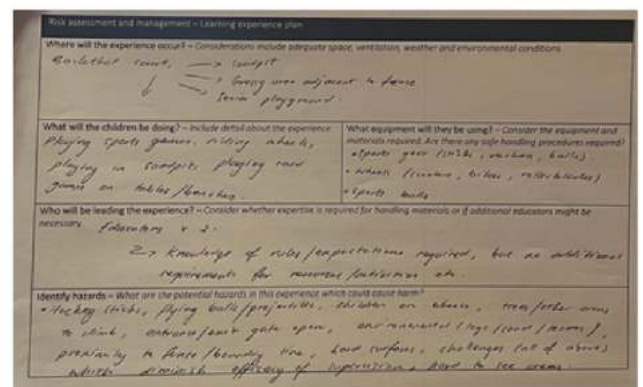 Risk assessment and management – Learning experience plan
Where will the experience occur? – Considerations include adequate space, ventilation, weather and environmental conditions
Basketball court, → sandpit
→ Grassy area adjacent to fence
→ Senior playground.
What will the children be doing? – Include detail about the experience
Playing sports games, riding wheels,
playing in sandpit, playing card
games on tables/benches.
What equipment will they be using? – Consider the equipment and
materials required. Are there any safe handling procedures required?
• Sports gear (sticks, balls)
• Wheels (scooters, bikes, rollerblades)
• Sports balls
Who will be leading the experience? – Consider whether expertise is required for handling materials or if additional educators might be
necessary. Educators x 2.
→ Knowledge of rules/expectations required, but no additional
requirements for resources/activities etc.
Identify hazards – What are the potential hazards in this experience which could cause harm?
• Hockey sticks, flying balls/projectiles, children on wheels, trees/other areas
to climb, entrance/exit gate open, environmental
proximity to fence/boundary line, hard surfaces, challenges (all of above)
which diminish efficacy of supervision, hard to see areas.